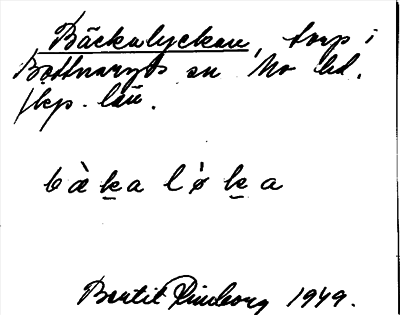 Bäckalyckan, torp i
Bottnaryds sn Mo hd.
Jkp. län.
bàka lǿka
Bertil Linborg 1949.